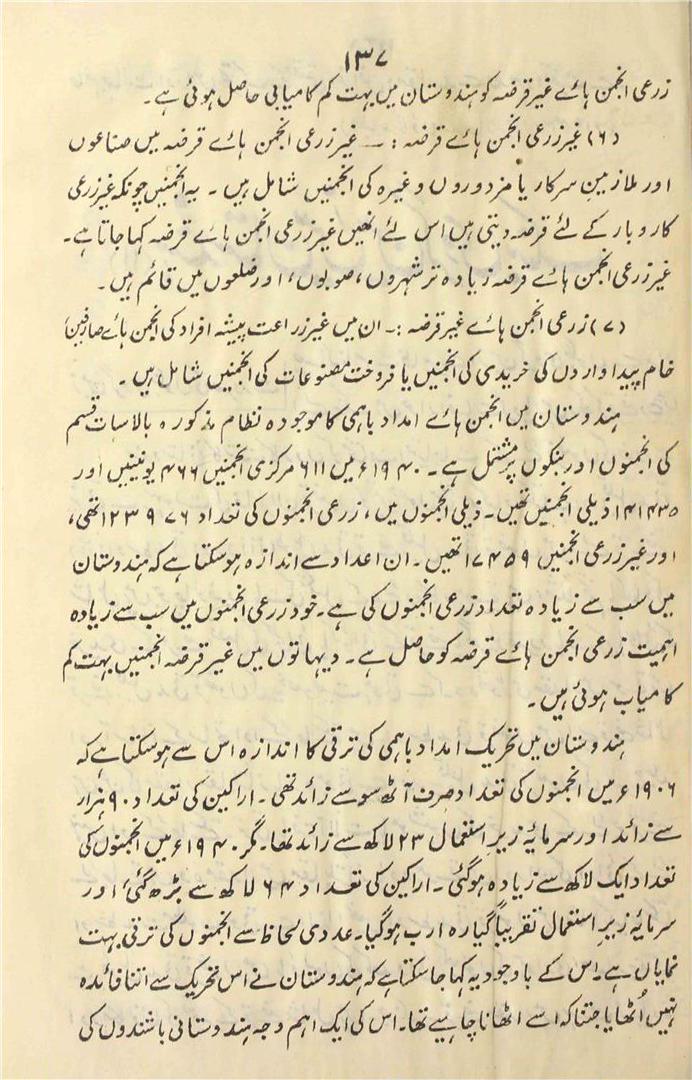 ۱۳۷
زرعی انجمن ہائے غیر قرضہ کو ہندوستان میں بہت کم کامیابی حاصل ہوئی ہے۔
(۶) غیر زرعی انجمن ہائے قرضہ :۔ غیر زرعی انجمن ہائے قرضہ میں صناعوں
اور ملازمین سرکار یا مزدوروں وغیرہ کی انجمنیں شامل ہیں۔ یہ انجمنیں چونکہ غیر زرعی
کاروبار کے لئے قرضہ دیتی ہیں اس لئے انھیں غیر زرعی انجمن ہائے قرضہ کہا جاتا ہے۔
غیر زرعی انجمن ہائے قرضہ زیادہ تر شہروں، صوبوں، اور ضلعوں میں قائم ہیں۔
(۷) زرعی انجمن ہائے غیر قرضہ :۔ ان میں غیر زراعت پیشہ افراد کی انجمن ہائے صارفین،
خام پیداواردں کی خریدی کی انجمنیں یا فروخت مصنوعات کی انجمنیں شامل ہیں۔
ہندوستان میں انجمن ہائے امداد باہمی کا موجودہ نظام مذکورہ بالا سات قسم
کی انجمنوں اور بنکوں پر مشتمل ہے۔ ۱۹۴۰ء میں ۶۱۱ مرکزی انجمنیں ۴۶۶ یونینیں اور
۱۴۱۴۳۵ ذیلی انجمنیں تھیں۔ ذیلی انجمنوں میں، زرعی انجمنوں کی تعداد ۱۲۳۹۷۶ تھی،
اور غیر زرعی انجمنیں ۱۷۴۵۹ تھیں۔ ان اعداد سے اندازہ ہوسکتا ہے کہ ہندوستان
میں سب سے زیادہ تعداد زرعی انجمنوں کی ہے۔ خود زرعی انجمنوں میں سب سے زیادہ
اہمیت زرعی انجمن ہائے قرضہ کو حاصل ہے۔ دیہاتوں میں غیر قرضہ انجمنیں بہت کم
کامیاب ہوئی ہیں۔
ہندوستان میں تحریک امداد باہمی کی ترقی کا اندازہ اس سے ہوسکتا ہے کہ
۱۹۰۶ء میں انجمنوں کی تعداد صرف آٹھ سو سے زائد تھی۔ اراکین کی تعداد ۹۰ ہزار
سے زائد اور سرمایۂ زیر استعمال ۲۳ لاکھ سے زائد تھا۔ مگر ۱۹۴۰ء میں انجمنوں کی
تعداد ایک لاکھ سے زیادہ ہوگئی۔ اراکین کی تعداد ۶۴ لاکھ سے بڑھ گئی اور
سرمایۂ زیر استعمال تقریباً گیارہ ارب ہوگیا۔ عددی لحاظ سے انجمنوں کی ترقی بہت
نمایاں ہے۔ اس کے باوجود یہ کہا جاسکتا ہے کہ ہندوستان نے اس تحریک سے اتنا فائدہ
نہیں اُٹھایا جتنا کہ اسے اٹھانا چاہیے تھا۔ اس کی ایک اہم وجہ ہندوستانی باشندوں کی